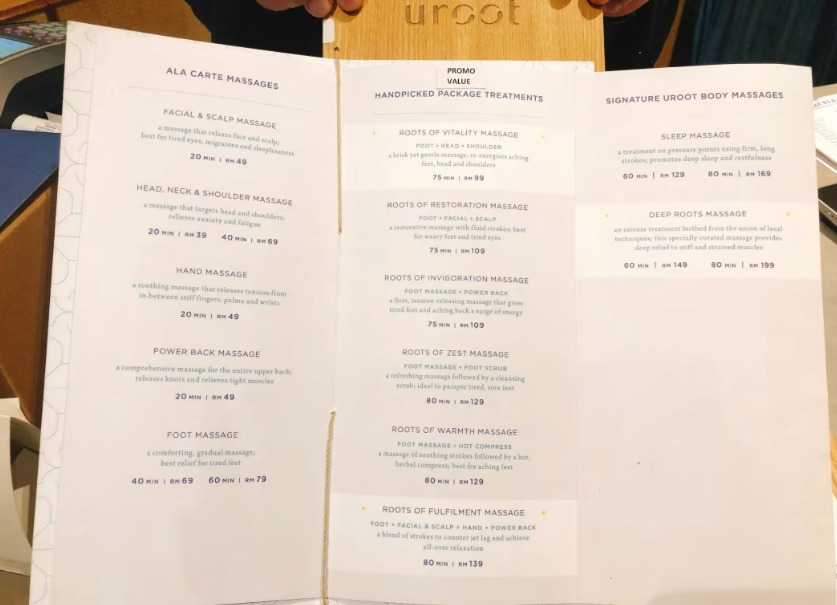 uroot
ALA CARTE MASSAGES
FACIAL & SCALP MASSAGE
a massage that relaxes face and scalp;
best for tired eyes, migraines and sleeplessness
20 MIN | RM 49
HEAD, NECK & SHOULDER MASSAGE
a massage that targets head and shoulders;
relieves anxiety and fatigue
20 MIN | RM 39 40 MIN | RM 69
HAND MASSAGE
a soothing massage that releases tension from
in-between stiff fingers, palms and wrists
20 MIN | RM 49
POWER BACK MASSAGE
a comprehensive massage for the entire upper back;
releases knots and relieves tight muscles
20 MIN | RM 49
FOOT MASSAGE
a comforting, gradual massage;
best relief for tired feet
40 MIN | RM 69 60 MIN | RM 79
PROMO
VALUE
HANDPICKED PACKAGE TREATMENTS
ROOTS OF VITALITY MASSAGE
FOOT + HEAD + SHOULDER
a brisk yet gentle massage; re-energises aching
feet, head and shoulders
75 MIN | RM 99
ROOTS OF RESTORATION MASSAGE
FOOT + FACIAL + SCALP
a restorative massage with fluid strokes; best
for weary feet and tired eyes
75 MIN | RM 109
ROOTS OF INVIGORATION MASSAGE
FOOT MASSAGE + POWER BACK
a firm, tension-releasing massage that gives
tired feet and aching back a surge of energy
75 MIN | RM 109
ROOTS OF ZEST MASSAGE
FOOT MASSAGE + FOOT SCRUB
a refreshing massage followed by a cleansing
scrub; ideal to pamper tired, sore feet
80 MIN | RM 129
ROOTS OF WARMTH MASSAGE
FOOT MASSAGE + HOT COMPRESS
a massage of soothing strokes followed by a hot,
herbal compress; best for aching feet
80 MIN | RM 129
ROOTS OF FULFILMENT MASSAGE
FOOT + FACIAL & SCALP + HAND + POWER BACK
a blend of strokes to counter jet lag and achieve
all-over relaxation
80 MIN | RM 139
SIGNATURE UROOT BODY MASSAGES
SLEEP MASSAGE
a treatment on pressure points using firm, long
strokes; promotes deep sleep and restfulness
60 MIN | RM 129 80 MIN | RM 169
DEEP ROOTS MASSAGE
an intense treatment birthed from the union of local
techniques; this specially curated massage provides
deep relief to stiff and strained muscles
60 MIN | RM 149 80 MIN | RM 199